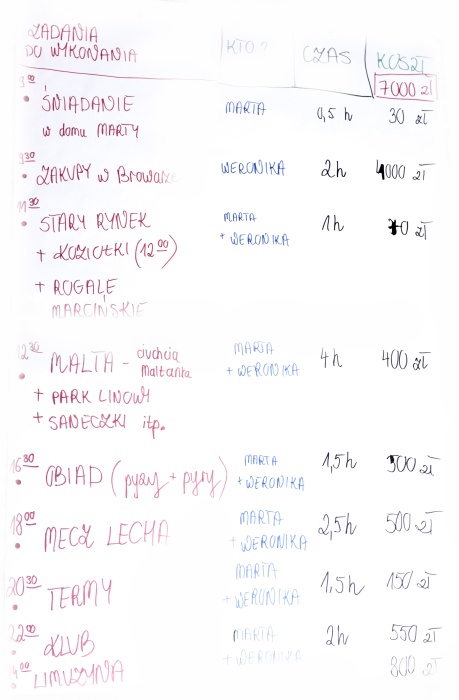 ZADANIA DO WYKONANIA KTO? CZAS KOSZT
7000 zł
9:00
• ŚNIADANIE MARTA 0,5 h 30 zł
w domu MARTY
9:30
• ZAKUPY w Browarze WERONIKA 2h 4000 zł
11:30
• STARY RYNEK MARTA + WERONIKA 1h 70 zł
+ KOZIOŁKI (12:00)
+ ROGALE
MARCIŃSKIE
12:30
• MALTA - ciuchcia Maltanka MARTA + WERONIKA 4h 400 zł
+ PARK LINOWY
+ SANECZKI itp.
16:30
• OBIAD (pyzy + pyry) MARTA + WERONIKA 1,5h 500 zł
18:00
• MECZ LECHA MARTA + WERONIKA 2,5h 500 zł
20:30
• TERMY MARTA + WERONIKA 1,5h 150 zł
22:00
• KLUB MARTA + WERONIKA 2h 550 zł
24:00
• LIMUZYNA 800 zł